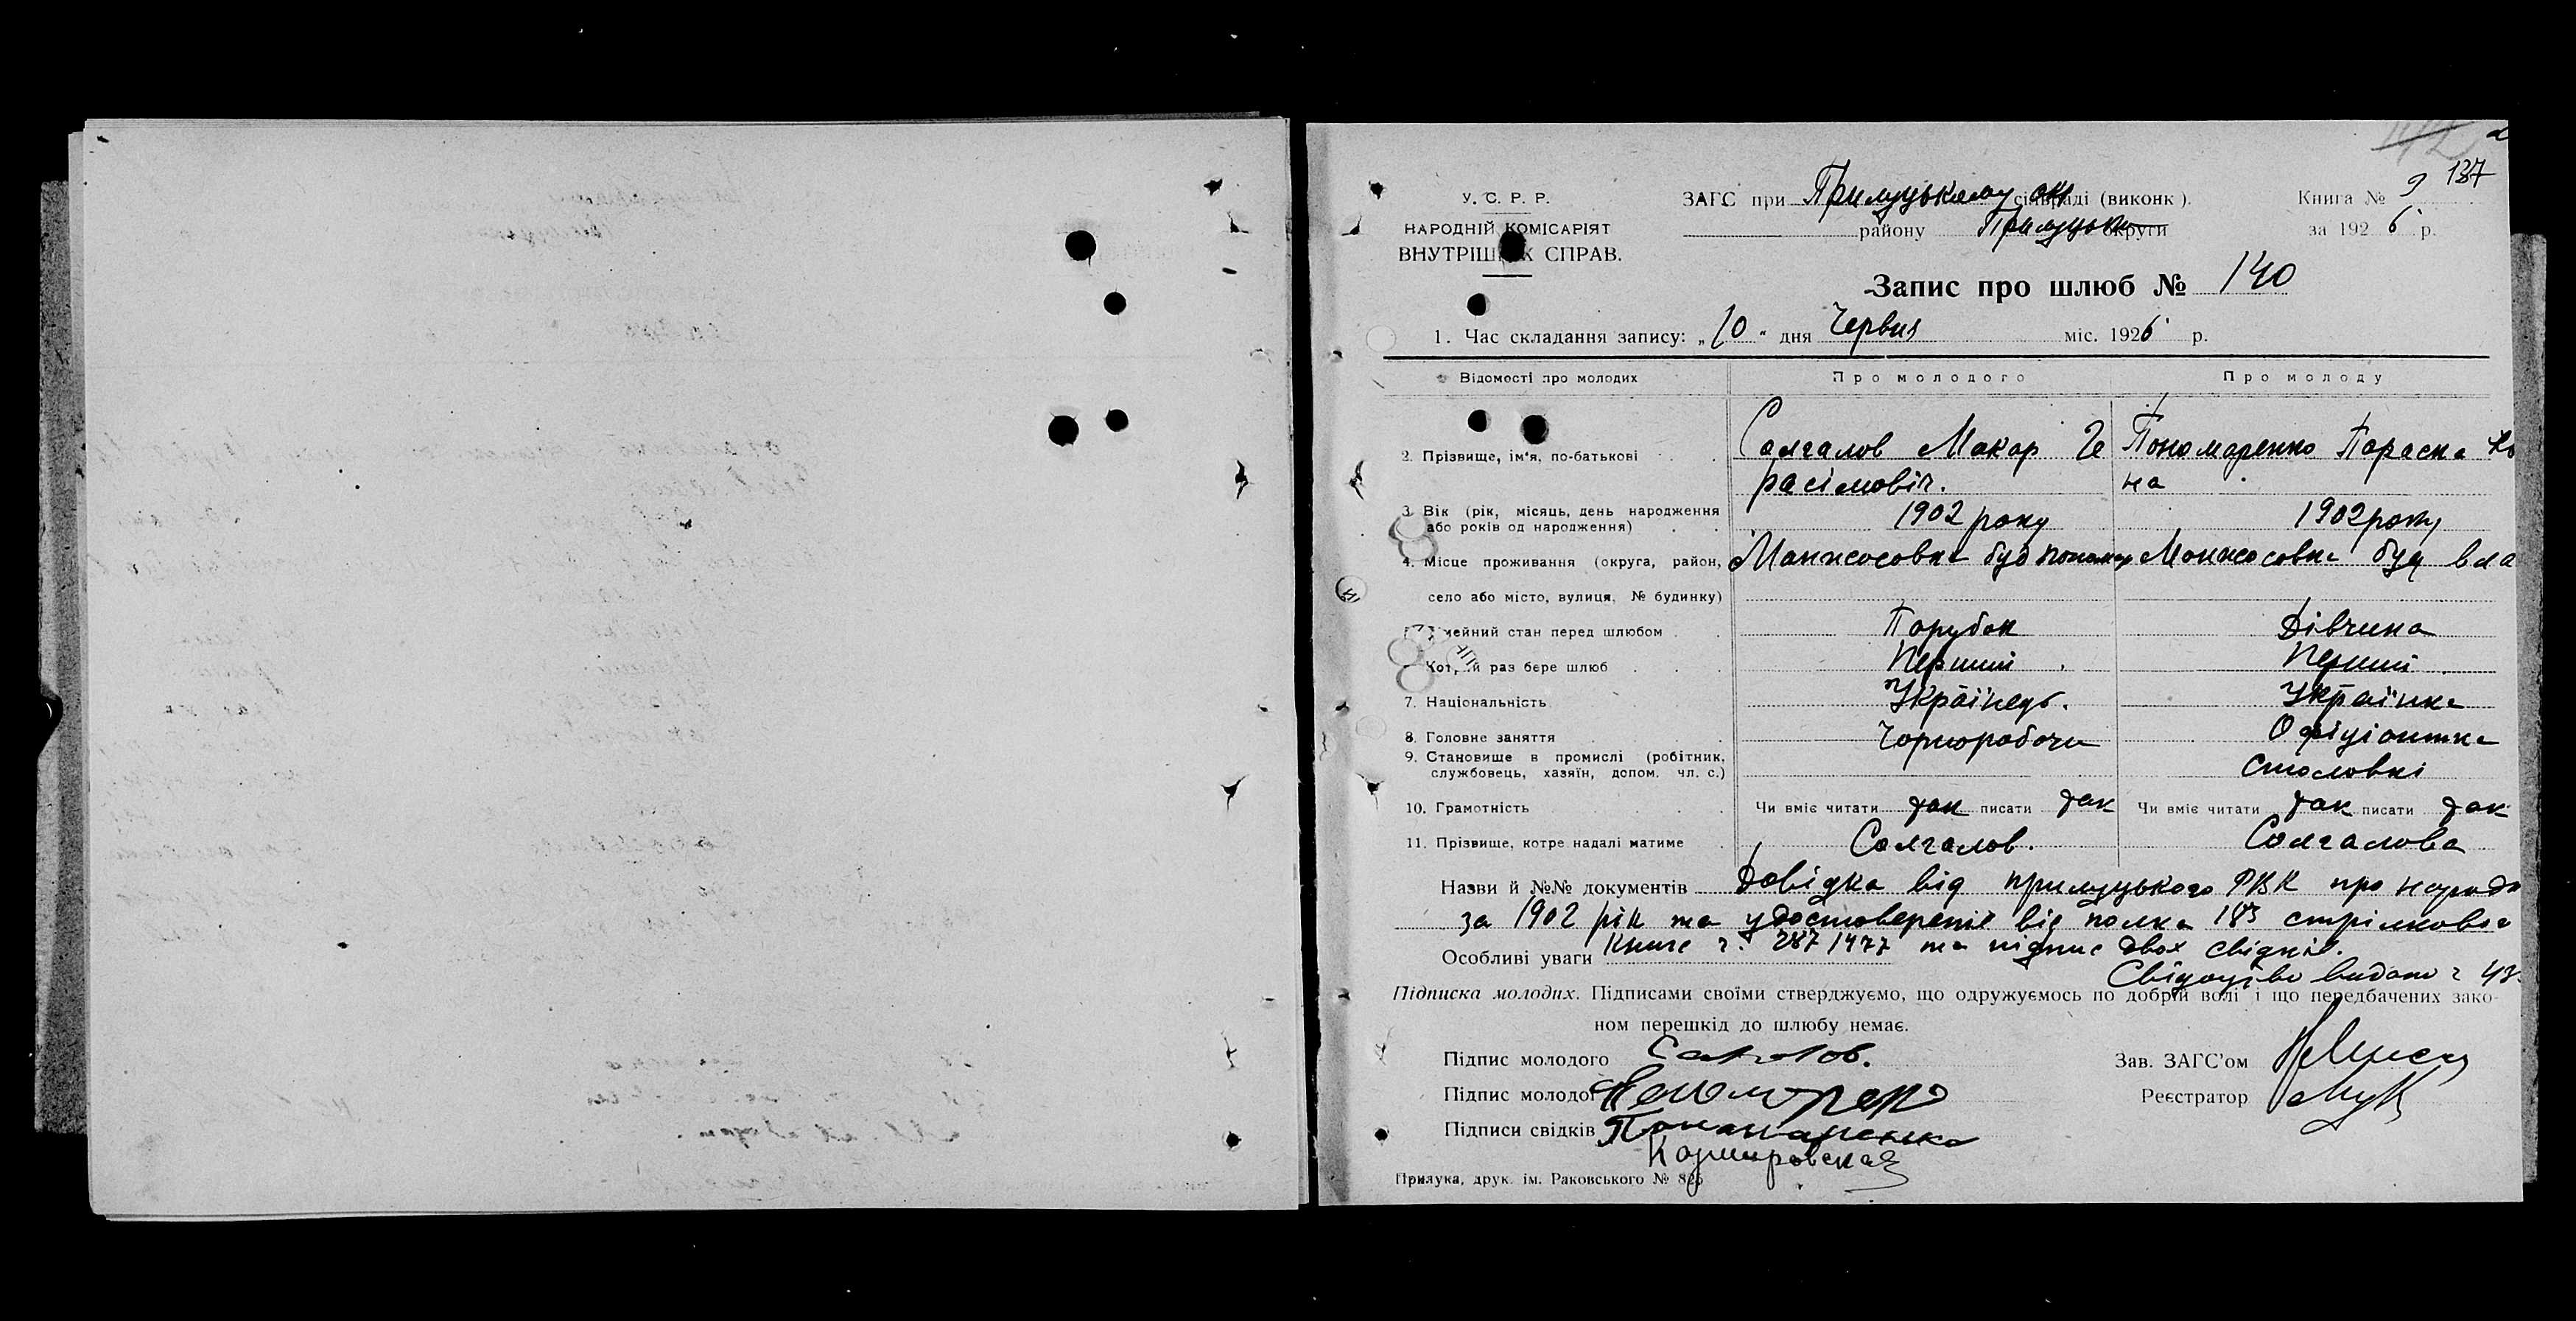 137
У. С. Р. Р.
НАРОДНІЙ КОМІСАРІЯТ
ВНУТРІШНІХ СПРАВ.
ЗАГС при Прилуцькому окр сільраді (виконк).
району Прилуцьки округи
Книга № 9
за 1926 р.
Запис про шлюб № 140
1. Час складання запису: „10" дня Червня міс. 1926 р.
Відомості про молодих Про молодого Про молоду
2. Прізвище, ім'я, по-батькові Салгалов Макар Ге Пономаренко Параска
расімовіч. на
3. Вік (рік, місяць, день народження 1902 року 1902 року
або років од народження)
4. Місце проживання (округа, район, Манжосовка буд Манжосовка буд вла
село або місто, вулиця, № будинку)
мейний стан перед шлюбом Парубок Дівчина
Котрий раз бере шлюб Перший Перший
7. Національність Українець. Українка
8. Головне заняття Чорноробочи Офіціантка
9. Становище в промислі (робітник, столовкі
службовець, хазяїн, допом. чл. с.)
10. Грамотність Чи вміє читати так писати так Чи вміє читати так писати так
11. Прізвище, котре надалі матиме Салгалов. Салгалова
Назви й №№ документів Довідка від прилуцького РВК про
за 1902 рік та удостовереніє від полка 183 стрілкового
Особливі уваги 287/477 та підпис двох свідків.
Свідоцтво видано
Підписка молодих. Підписами своїми стверджуємо, що одружуємось по добрій волі і що передбачених зако-
ном перешкід до шлюбу немає.
Підпис молодого Салгалов.
Зав. ЗАГС'ом
Підпис молодої
Реєстратор
Підписи свідків Пономаренко
Прилука, друк. ім. Раковського № 825